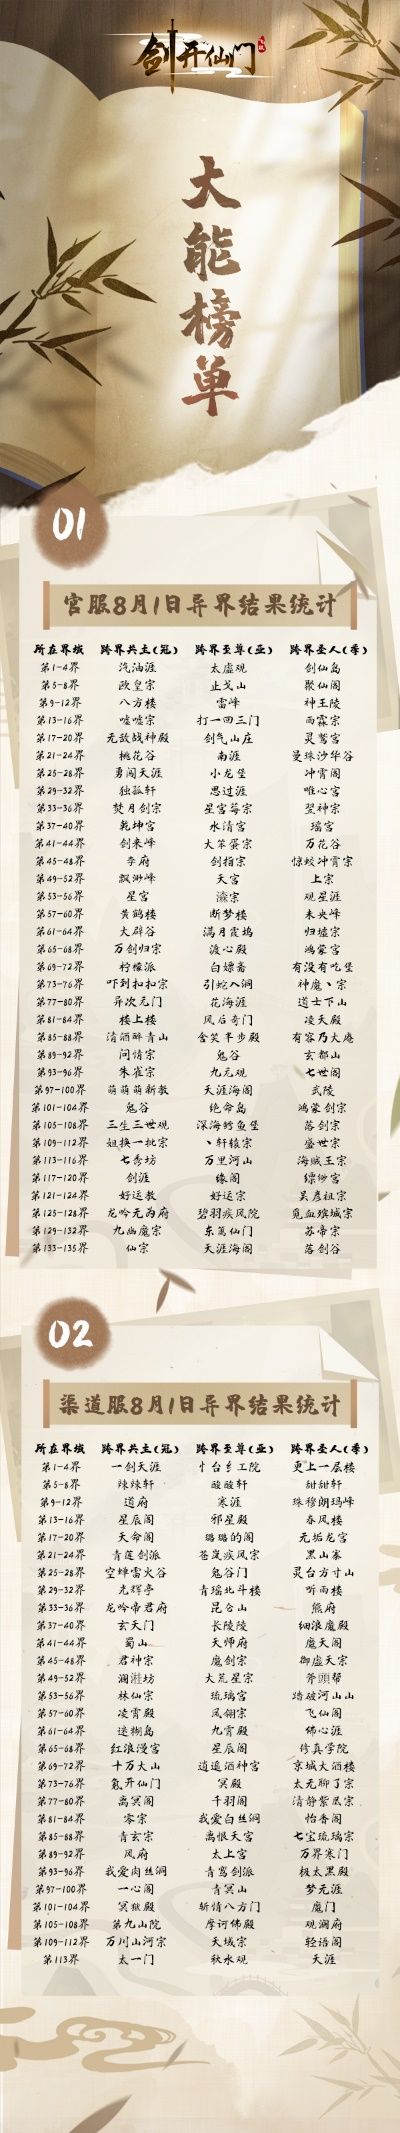 剑开仙门
大能榜单
01
官服8月1日异界结果统计
所在界域 跨界共主(冠) 跨界至尊(亚) 跨界圣人(季)
第1-4界 汽油涯 太虚观 剑仙岛
第5-8界 欧皇宗 止戈山 聚仙阁
第9-12界 八方楼 雷峰 神王陵
第13-16界 嘘嘘宗 打一四三门 西霖宗
第17-20界 无敌战神殿 剑气山庄 灵鹫宫
第21-24界 桃花谷 南涯 曼珠沙华谷
第25-28界 勇闯天涯 小龙堡 冲霄阁
第29-32界 独孤轩 思过涯 唯心宫
第33-36界 焚月剑宗 星宫莓宗 翌神宗
第37-40界 乾坤宫 水清宫 瑶宫
第41-44界 剑来峰 大笨蛋宗 万花谷
第45-48界 李府 剑指宗 惊蛟冲霄宗
第49-52界 飘渺峰 天宫 上宗
第53-56界 星宫 观星涯
第57-60界 黄鹤楼 断梦楼 未央峰
第61-64界 大辟谷 满月霞坞 归墟宗
第65-68界 万剑归宗 渡心殿 鸿蒙宫
第69-72界 柠檬派 白嫖斋 有没有吃堡
第73-76界 吓到扣扣宗 引蛇入洞 神魔丶宗
第77-80界 异次元门 花海涯 道士下山
第81-84界 楼上楼 风后奇门 凌天殿
第85-88界 清酒醉青山 含笑半步殿 有容乃大庵
第89-92界 问情宗 鬼谷 玄都山
第93-96界 朱雀宗 九元观 七世阁
第97-100界 萌萌萌新教 天涯海阁 武陵
第101-104界 鬼谷 绝命岛 鸿蒙剑宗
第105-108界 三生三世观 深海鳕鱼堡 落剑宗
第109-112界 姐换一批宗 丶轩辕宗 盛世宗
第113-116界 七秀坊 万里河山 海贼王宗
第117-120界 剑涯 缘阁 缥缈宫
第121-124界 好运教 好运宗 吴彦祖宗
第125-128界 龙吟无为府 碧羽疾风院 觅血殡城宗
第129-132界 九幽魔宗 东篱仙门 苏帝宗
第133-135界 仙宗 天涯海阁 落剑谷
02
渠道服8月1日异界结果统计
所在界域 跨界共主(冠) 跨界至尊(亚) 跨界圣人(季)
第1-4界 一剑天涯 更上一层楼
第5-8界 辣辣轩 酸酸轩 甜甜轩
第9-12界 道府 寒涯 珠穆朗玛峰
第13-16界 星辰阁 邪星殿 春风楼
第17-20界 天命阁 璐璐的阁 无垢龙宫
第21-24界 青莲剑派 苍岚疾风宗 黑山寨
第25-28界 空蝉雷火谷 鬼谷门 灵台方寸山
第29-32界 光辉亭 青瑶北斗楼 听雨楼
第33-36界 龙吟帝君府 昆仑山 熊府
第37-40界 玄天门 长陵陵 细浪魔殿
第41-44界 蜀山 天师府 魔天阁
第45-48界 君神宗 魔剑宗 御虚天宗
第49-52界 澜潜坊 大荒星宗 斧頭帮
第53-56界 林仙宗 琉璃宫 踏破河山山
第57-60界 凌霄殿 凤翎宗 飞仙阁
第61-64界 迷糊岛 九霄殿 佛心涯
第65-68界 红浪漫宫 星辰阁 修真学院
第69-72界 十万大山 逍遥酒神宫 京城大酒楼
第73-76界 氪开仙门 冥殿 太无聊了宗
第77-80界 离冥阁 千羽阁 清静紫凰宗
第81-84界 零宗 我爱白丝洞 怡香阁
第85-88界 青玄宗 离恨天宫 七宝琉璃宗
第89-92界 风府 太上宫 万界寒门
第93-96界 我爱肉丝洞 青鸾剑派 极太黑殿
第97-100界 一心阁 青冥山 梦元涯
第101-104界 冥狱殿 斩情八方门 魔门
第105-108界 第九山院 摩诃佛殿 观澜府
第109-112界 万川山河宗 天域宗 轻语阁
第113界 太一门 秋水观 天涯